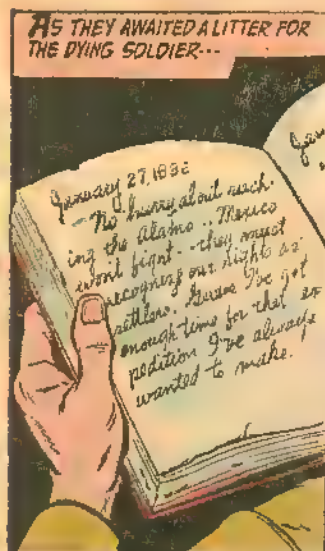 AS THEY AWAITED A LITTER FOR
THE DYING SOLDIER---
January 27, 183
-- No hurry about reach-
ing the Alamo .. Mexico
won't fight -- they must
recognize our rights as
settlers. Guess I've got
enough time for that ex
pedition I've always
wanted to make.